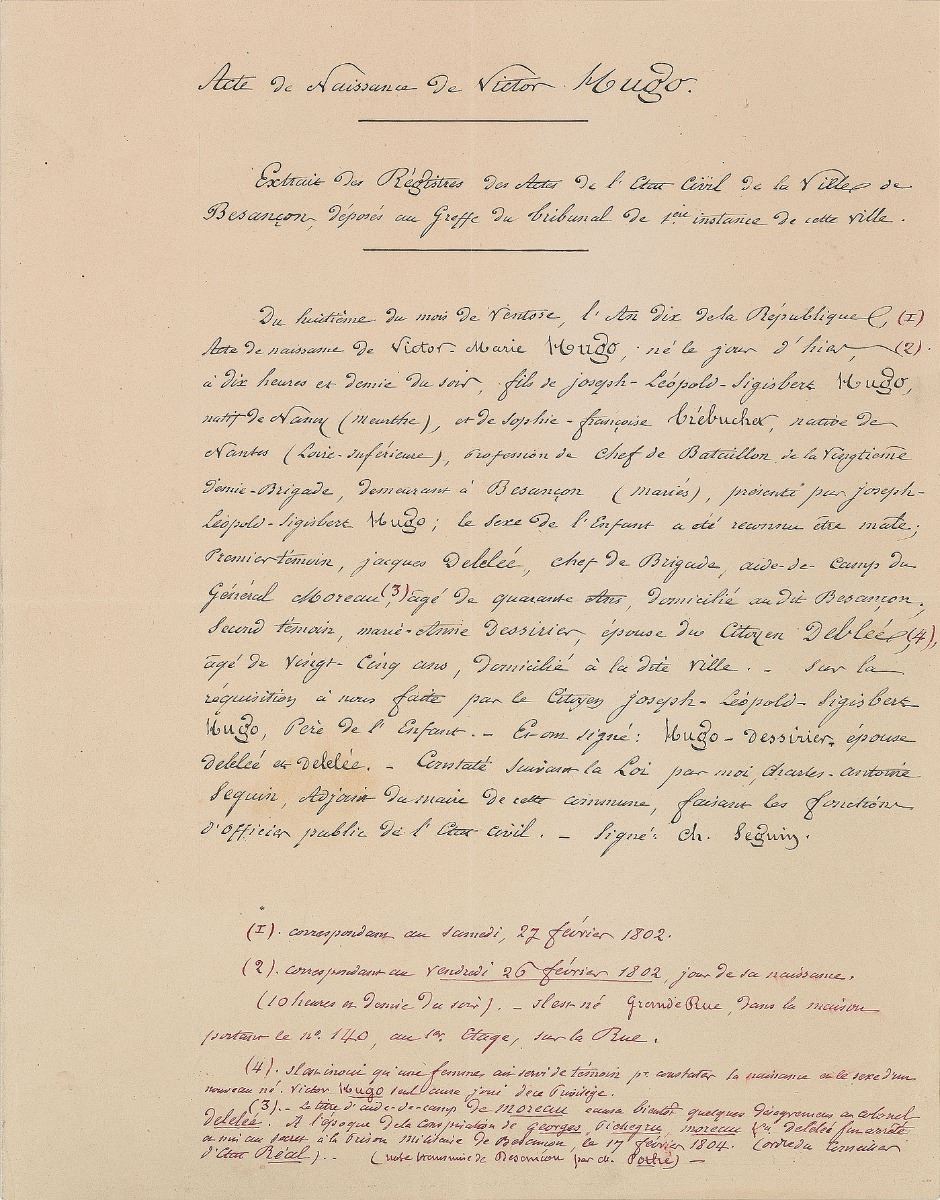 Acte de Naissance de Victor Hugo.
Extrait des Régistres des Actes de l'Etat Civil de la Ville de
Besançon, déposés au Greffe du tribunal de 1ère instance de cette ville.
Du huitième du mois de Ventose, l'An dix de la République, (1)
Acte de naissance de Victor-Marie Hugo, né le jour d'hier, (2).
à dix heures et demie du soir, fils de joseph-Léopold-Sigisbert Hugo,
natif de Nancy (meurthe), et de Sophie-françoise trébuchet, native de
Nantes (Loire-inférieure), profession de chef de Bataillon de la vingtième
demie-Brigade, demeurant à Besançon (mariés), présenté par joseph-
Léopold-Sigisbert Hugo; le sexe de l'Enfant a été reconnu être mâle;
Premier témoin, jacques Delelée, chef de Brigade, aide-de-camp du
Général Moreau, (3) âgé de quarante Ans, domicilié au dit Besançon;
Second témoin, marie-Anne Dessirier, épouse du Citoyen Delelée, (4),
âgé de vingt-cinq ans, domicilié à la dite ville. - Sur la
réquisition à nous faite par le Citoyen joseph-Léopold-Sigisbert
Hugo, Père de l'Enfant. - Et ont signé: Hugo-Dessirier, épouse
delelée et Delelée. - Constaté suivant la Loi par moi, Charles-antoine
Seguin, Adjoint du maire de cette commune, faisant les fonctions
d'officier public de l'Etat civil. - Signé: Ch. Seguin.
(1). correspondant au Samedi, 27 février 1802.
(2). correspondant au vendredi 26 février 1802, jour de sa naissance.
(10 heures et demie du soir). - Il est né Grande Rue, dans la maison
portant le n° 140, au 1er Etage, sur la Rue.
(4). Il est inouï qu'une femme ait servi de témoin pr constater la naissance et le sexe d'un
nouveau né. Victor Hugo seul aura joui de ce Privilège.
(3). - Le titre d'aide-de-camp de Moreau causa bientôt quelques désagrémens au colonel
delelée. A l'époque de la Conspiration de georges, Pichegru, moreau delelée fut arrêté
et mis au secret à la Prison militaire de Besançon, le 17 février 1804. (ordre du Conseiller
d'Etat Réal). - (note transmise de Besançon par M.) -